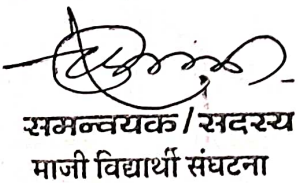 समन्वयक/सदस्य
माजी विद्यार्थी संघटना